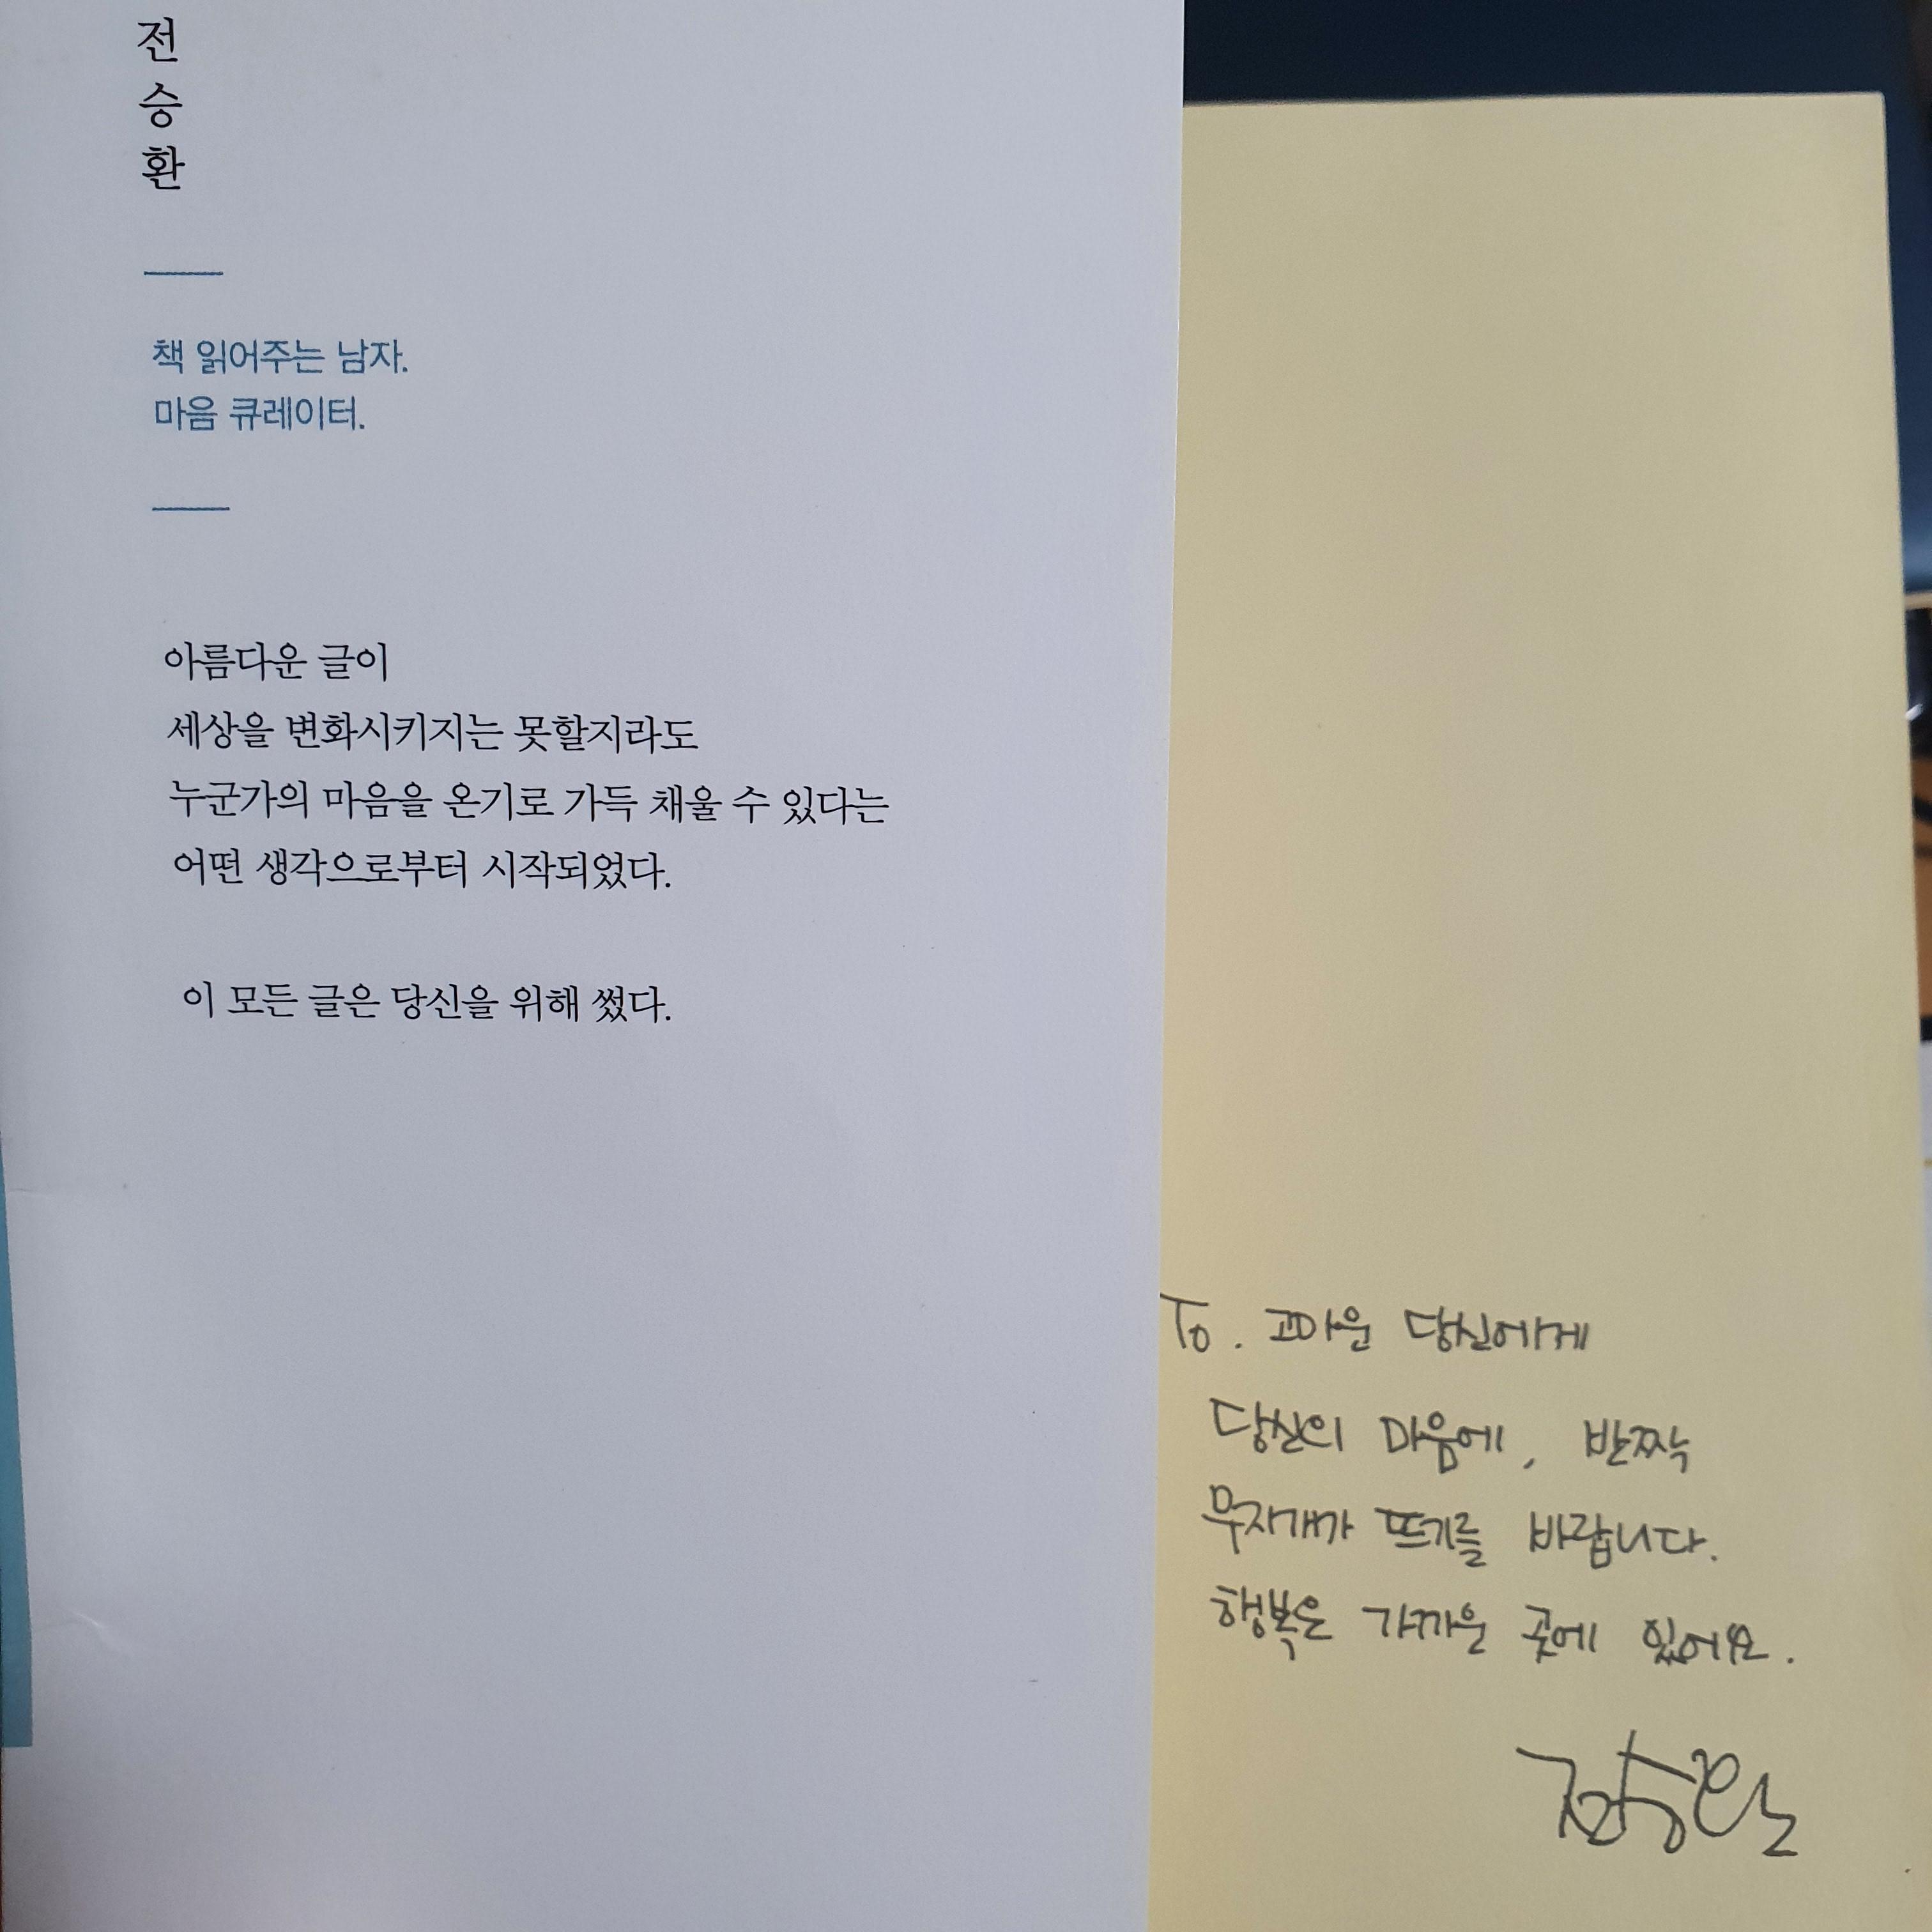 전
승
환
책 읽어주는 남자.
마음 큐레이터.
아름다운 글이
세상을 변화시키지는 못할지라도
누군가의 마음을 온기로 가득 채울 수 있다는
어떤 생각으로부터 시작되었다.
이 모든 글은 당신을 위해 썼다.
To. 고마운 당신에게
당신의 마음에, 반짝
무지개가 뜨기를 바랍니다.
행복은 가까운 곳에 있어요.
전승환